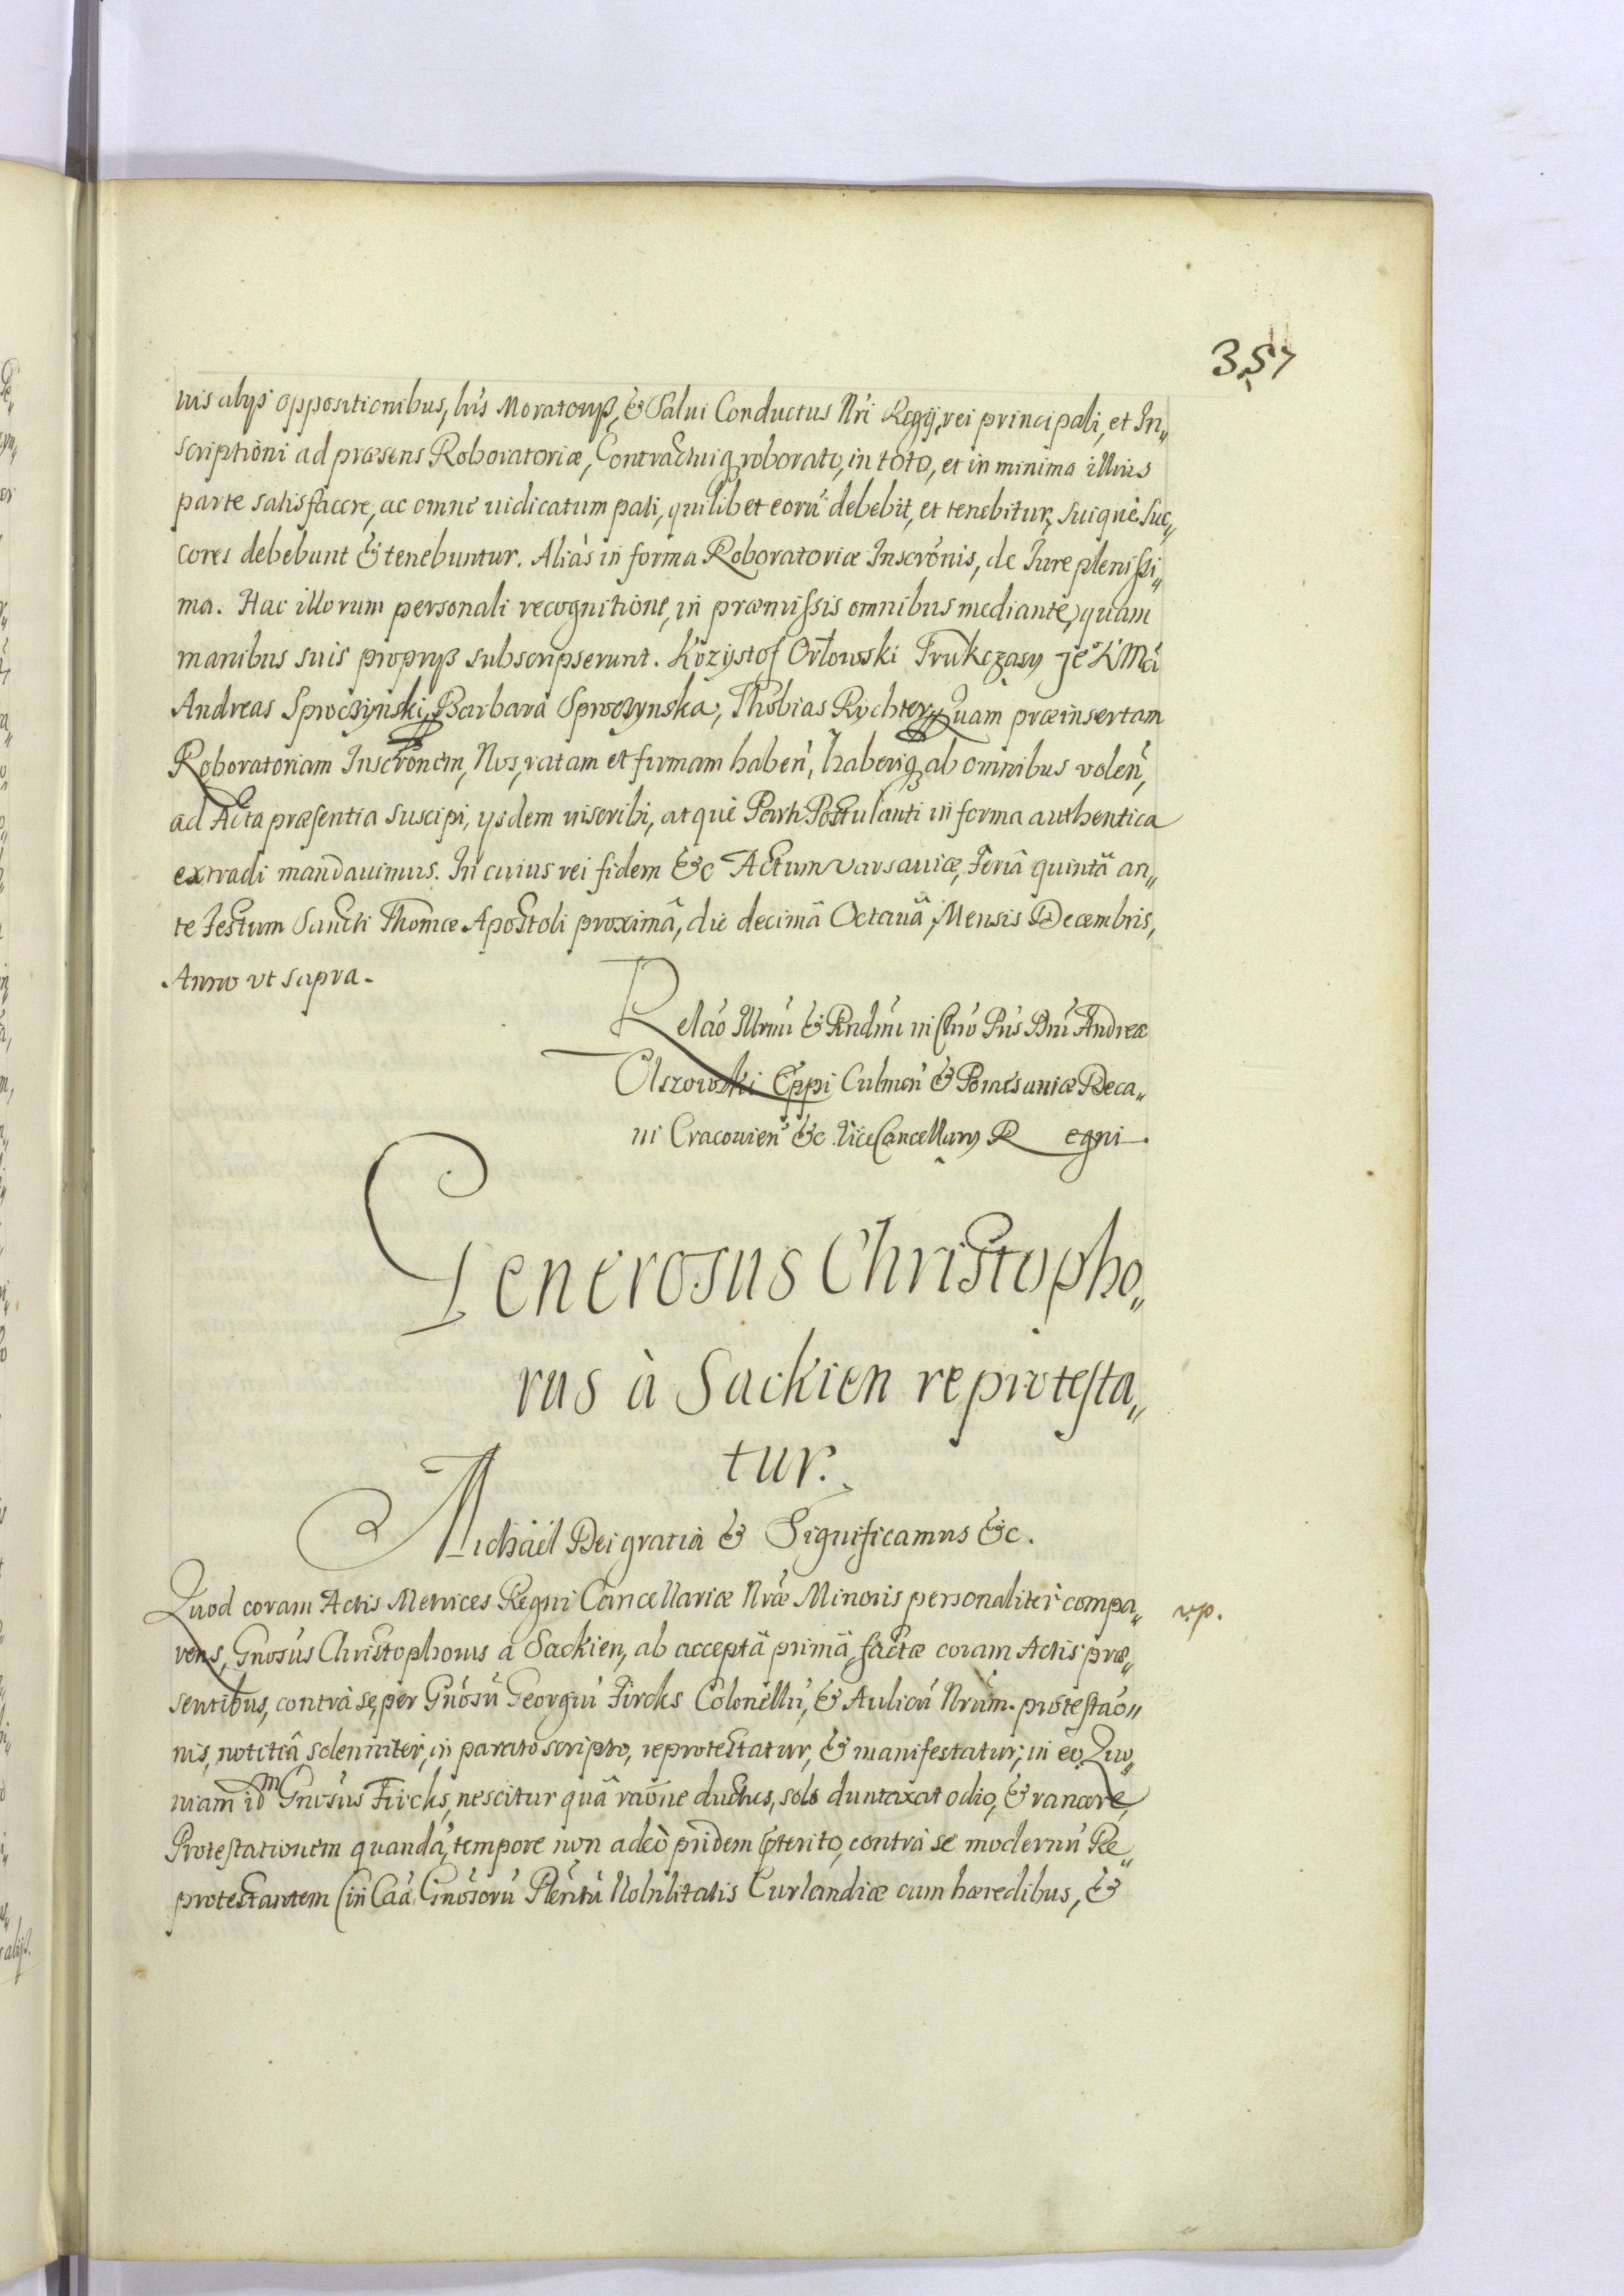 357
nis alijs oppositionibus, lris Moratorijs, & Salui Conductus Nri Regij, rei principali, et In„
scriptioni ad præsens Roboratoriæ, Contractuiq, roborato, in toto, et in minima illius
parte satisfacere, ac omne iudicatum pati, quilibet eorũ debebit, et tenebitur, suique suc„
cores debebunt & tenebuntur. Aliàs in forma Roboratoriæ Inscrónis, de Iure plenissi„
ma. Hac illorum personali recognitione, in præmissis omnibus mediante, quam
manibus suis proprijs subscripserunt. Krzysztof Orłowski Trukczasy Je K Mći
Andreas Sproczynski, Barbara Sproczynska, Thobias Rychter, Quam præinsertam
Roboratoriam Inscrónem, Nos, ratam et firmam habeń, haberiq, ab omnibus voleń,
ad Acta præsentia suscipi, ijsdem inscribi, atque Parti Postulanti in forma authentica
extradi mandauimus. In cuius rei fidem &c Actum Varsauiæ, Feriâ quintâ an„
te Festum Sancti Thomæ Apostoli proximâ, die decimâ Octauâ, Mensis Decembris,
Anno vt supra.
Relão Illrmi & Rndmi in Chro Pris Dni Andreæ
Olszowski Eppi Culmeń & Pomesaniæ Deca„
ni Cracouień &c ViceCancellarij Regni.
Generosus Christopho„
rus à Sackien reprotesta„
tur.
Michaël Dei gratia & Significamus &c.
Quod coram Actis Metrices Regni Cancellariæ Nræ Minoris personaliter compa„
rens, Gnosus Christophorus a Sackien, ab acceptâ primâ, factæ coram Actis præ„
sentibus, contrà se, per Gnosũ Georgiũ Fircks Colonellũ, & Aulicũ Nrũm protestão„
nis, notitiâ solenniter, in parato scripto, reprotestatur, & manifestatur; in eo, Quo„
niam idm Gnosus Fircks, nescitur quâ raõne ductus, solo duntaxat odio, & rancore,
Protestationem quandã, tempore non adeò pridem pterito, contrà se modernũ Re„
protestantem (in Caã Gnosorũ Plentũ Nobilitatis Curlandiæ cum hæredibus, &
v.p.